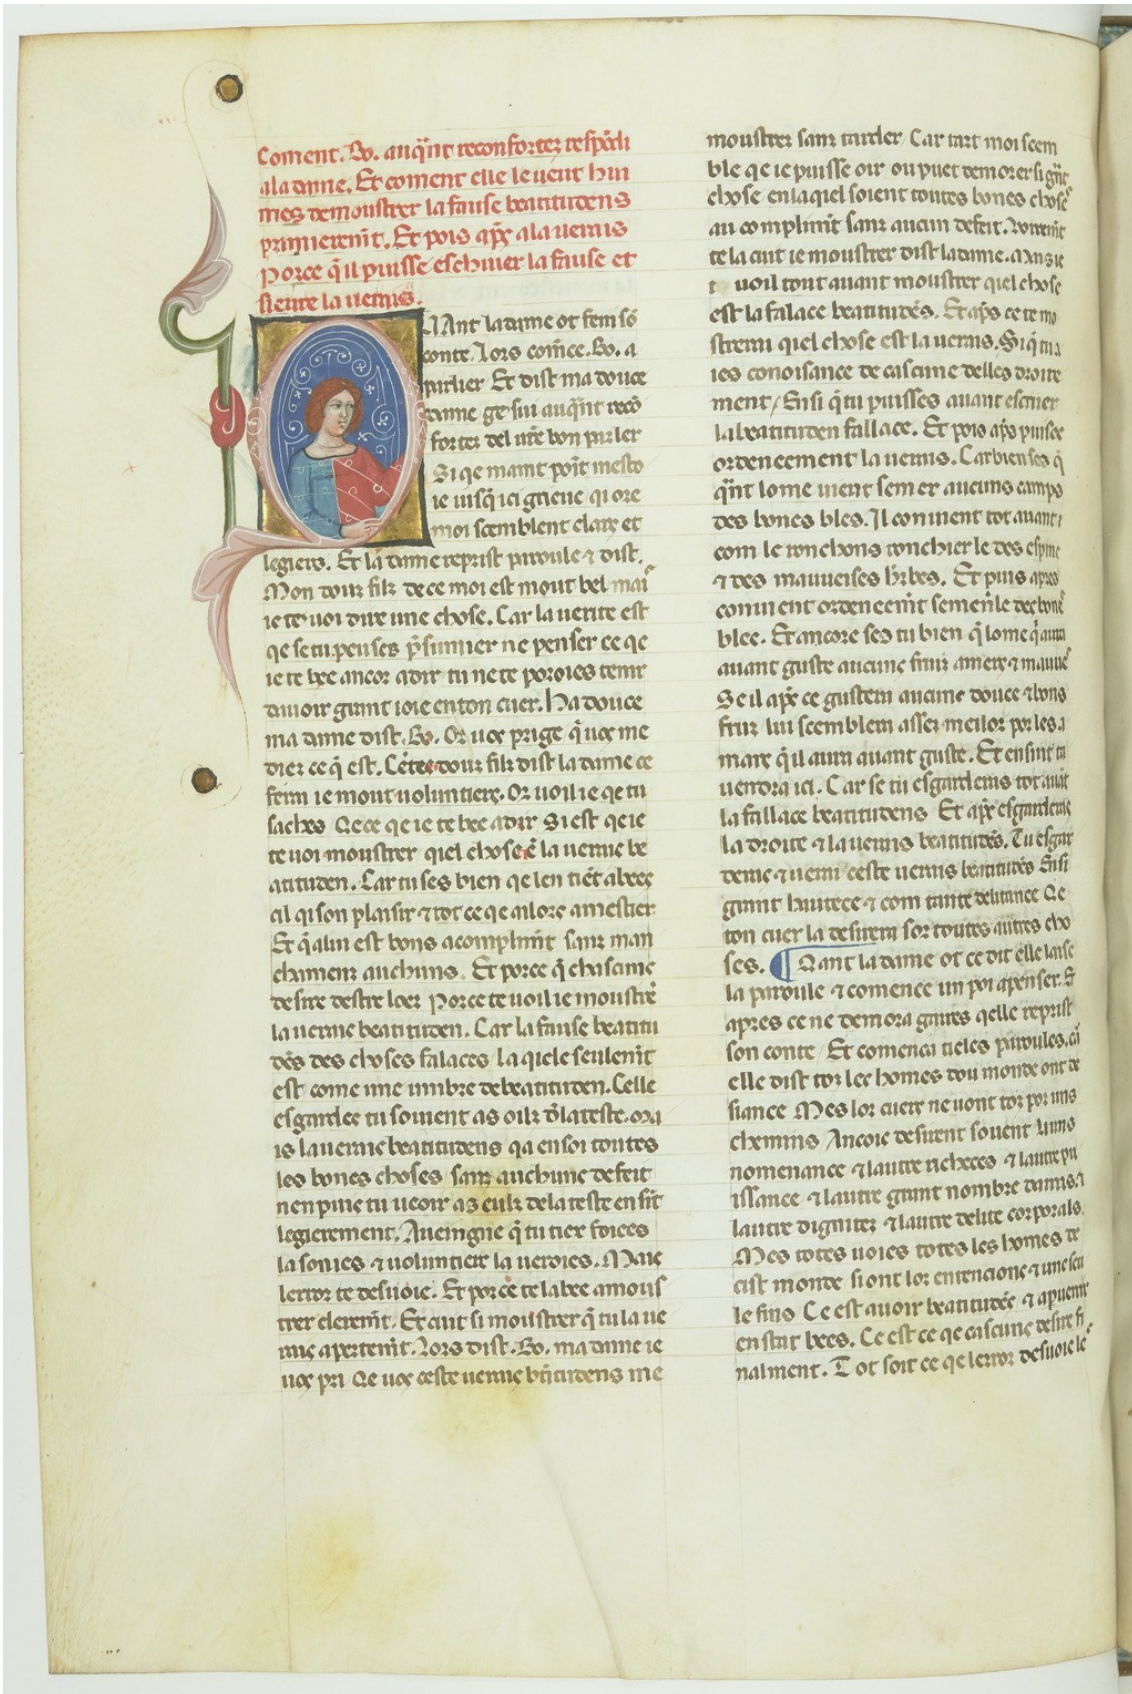 Coment. Bo. auq̃nt reconfortez respõdi
a la dame. Et coment elle le veut hui
mes demoustrer la fause beatitudens
primieremt̃. Et pois apx̃ a la verais
Porce q̃ il puisse eschiuer la fause et
sieure la veraiis.
QAnt la dame ot feni sõ
conte. Lors comẽce. Bo. a
parlier Et dist ma douce
dame ge sui auq̃nt recõ
fortez del ur̃e bon parler
Si qe maint point mesto
ie iusq̃ ici grieue qi ore
moi scemblent clarx et
legiers. Et la dame reprist paroule ⁊ dist.
Mon douz filz de ce moi est mout bel maiᷤ
ie te voi dire une chose. Car la uerite est
qe se tu peuses p̃sumier ne penser ce qe
ie te bee ancor a dir tu ne te poroies tenir
dauoir grant ioie en ton cuer. Ha douce
ma dame dist. Bo. Or uox prige q̃ uox me
diez ce q̃ est. Cẽtes douz filz dist la dame ce
ferai ie mout uoluntierx. Or uoil ie qe tu
saches Qe ce qe ie te bee a dir Si est qe ie
te uoi moustrer qiel chose ẽ la ueraie be
atituden. Car tu ses bien qe len tiẽt a beex
cil qi son plaisir ⁊ tot ce qe ailors a mestier
Et q̃ a lui est bons acomplimt̃ sanz man
chament auchuns. Et porce q̃ chascune
desire destre beez Porce te uoil ie moustrer
la ueraie beatituden. Car la fause beatitu
dẽs des choses falaces la qiele seulemt̃
est come une umbre de beatituden. Celle
esgardee tu souient as oilz d̃ la teste. Ma
is la ueraie beatitudens qa en soi toutes
les bones choses sanz auchune defeit
nen puie tu ueoir as eulz de la teste en sir̃
legierement. Aueingne q̃ tu tiex foiees
la sonies ⁊ uoluntierx la ueroies. Maix
lerror te desuoie. Et porce te la bee a mous
trer cleremt̃. Et ciut si moustrer q̃ tu la ue
raie apertemt̃. Lors dist. Bo. ma dame ie
uox pri Qe uox ceste ueraie bt̃itudens me
moustrez sanz tardier Car tart moi scem
ble qe ie puisse oir ou puet demorer si g̃nt
chose en la qiel soient toutes bones choses
au complimt̃ sanz aucun defeit. Voiremt̃
te la cuit ie moustrer dist la dame. Mais ie
t uoil tout auant moustrer qiel chose
est la falace beatitudẽs. Et apõs ce te mo
strerai qiel chose est la ueraiis. Si q̃ tu a
ies conoisance de cascune delles droite
ment / Ensi q̃ tu puisses auant eschiuer
la beatituden fallace. Et pois apõs puisse
ordeneement la ueraiis. Car bien ses q̃
q̃nt lome uient semer aucuns camps
des bones bles. Il conuient tot auant
com le ronchons ronchier le des espine
⁊ des mauueises h̃rbes. Et puis apres
conuient ordeneemt̃ semenle des boneᷤ
blee. Et ancore ses tu bien q̃ lome q̃ aura
auant guste aucune fruiz amere ⁊ mauueᷤ
Se il apx̃ ce gustera aucune douce ⁊ bons
fruiz lui scemblera assez meilor por les a
marx q̃ il aura auant guste. Et ensint tu
uerrora ici. Car se tu esgarderais tot auãt
la fallace beatitudens Et apx̃ esgarderaie
la droite ⁊ la ueraiis beatitudẽs. Tu esgar
deraie ⁊ uerrai ceste ueraiis beatitudẽs Ensi
grant hautece ⁊ com tante delitance Qe
ton cuer la desirera sor toutes autres cho
ses. ¶ Qant la dame ot ce dit elle laise
la paroule ⁊ comence un poi apenser. Et
apres ce ne demora gaires qelle reprist
son conte / Et comenca tieles paroules. ca᷉
elle dist toz lee homes dou monde ont de
siance Mes lor cuerx ne uont toz por uns
chemins Ancoie desirent souent luns
nomenance ⁊ lautre richeces ⁊ lautre pu
issance ⁊ lautre grant nombre damis. ⁊
lautre dignitez ⁊ lautre delite corporals.
Mes totes uoies totes les homes de
cist monde si ont lor entencione ⁊ une seu
le fins Ce est auoir beatitudẽs ⁊ a puenir
en stat bees. Ce est ce qe cascune desire fi
nalment. Tot soit ce qe lerror desuoie leᷤ